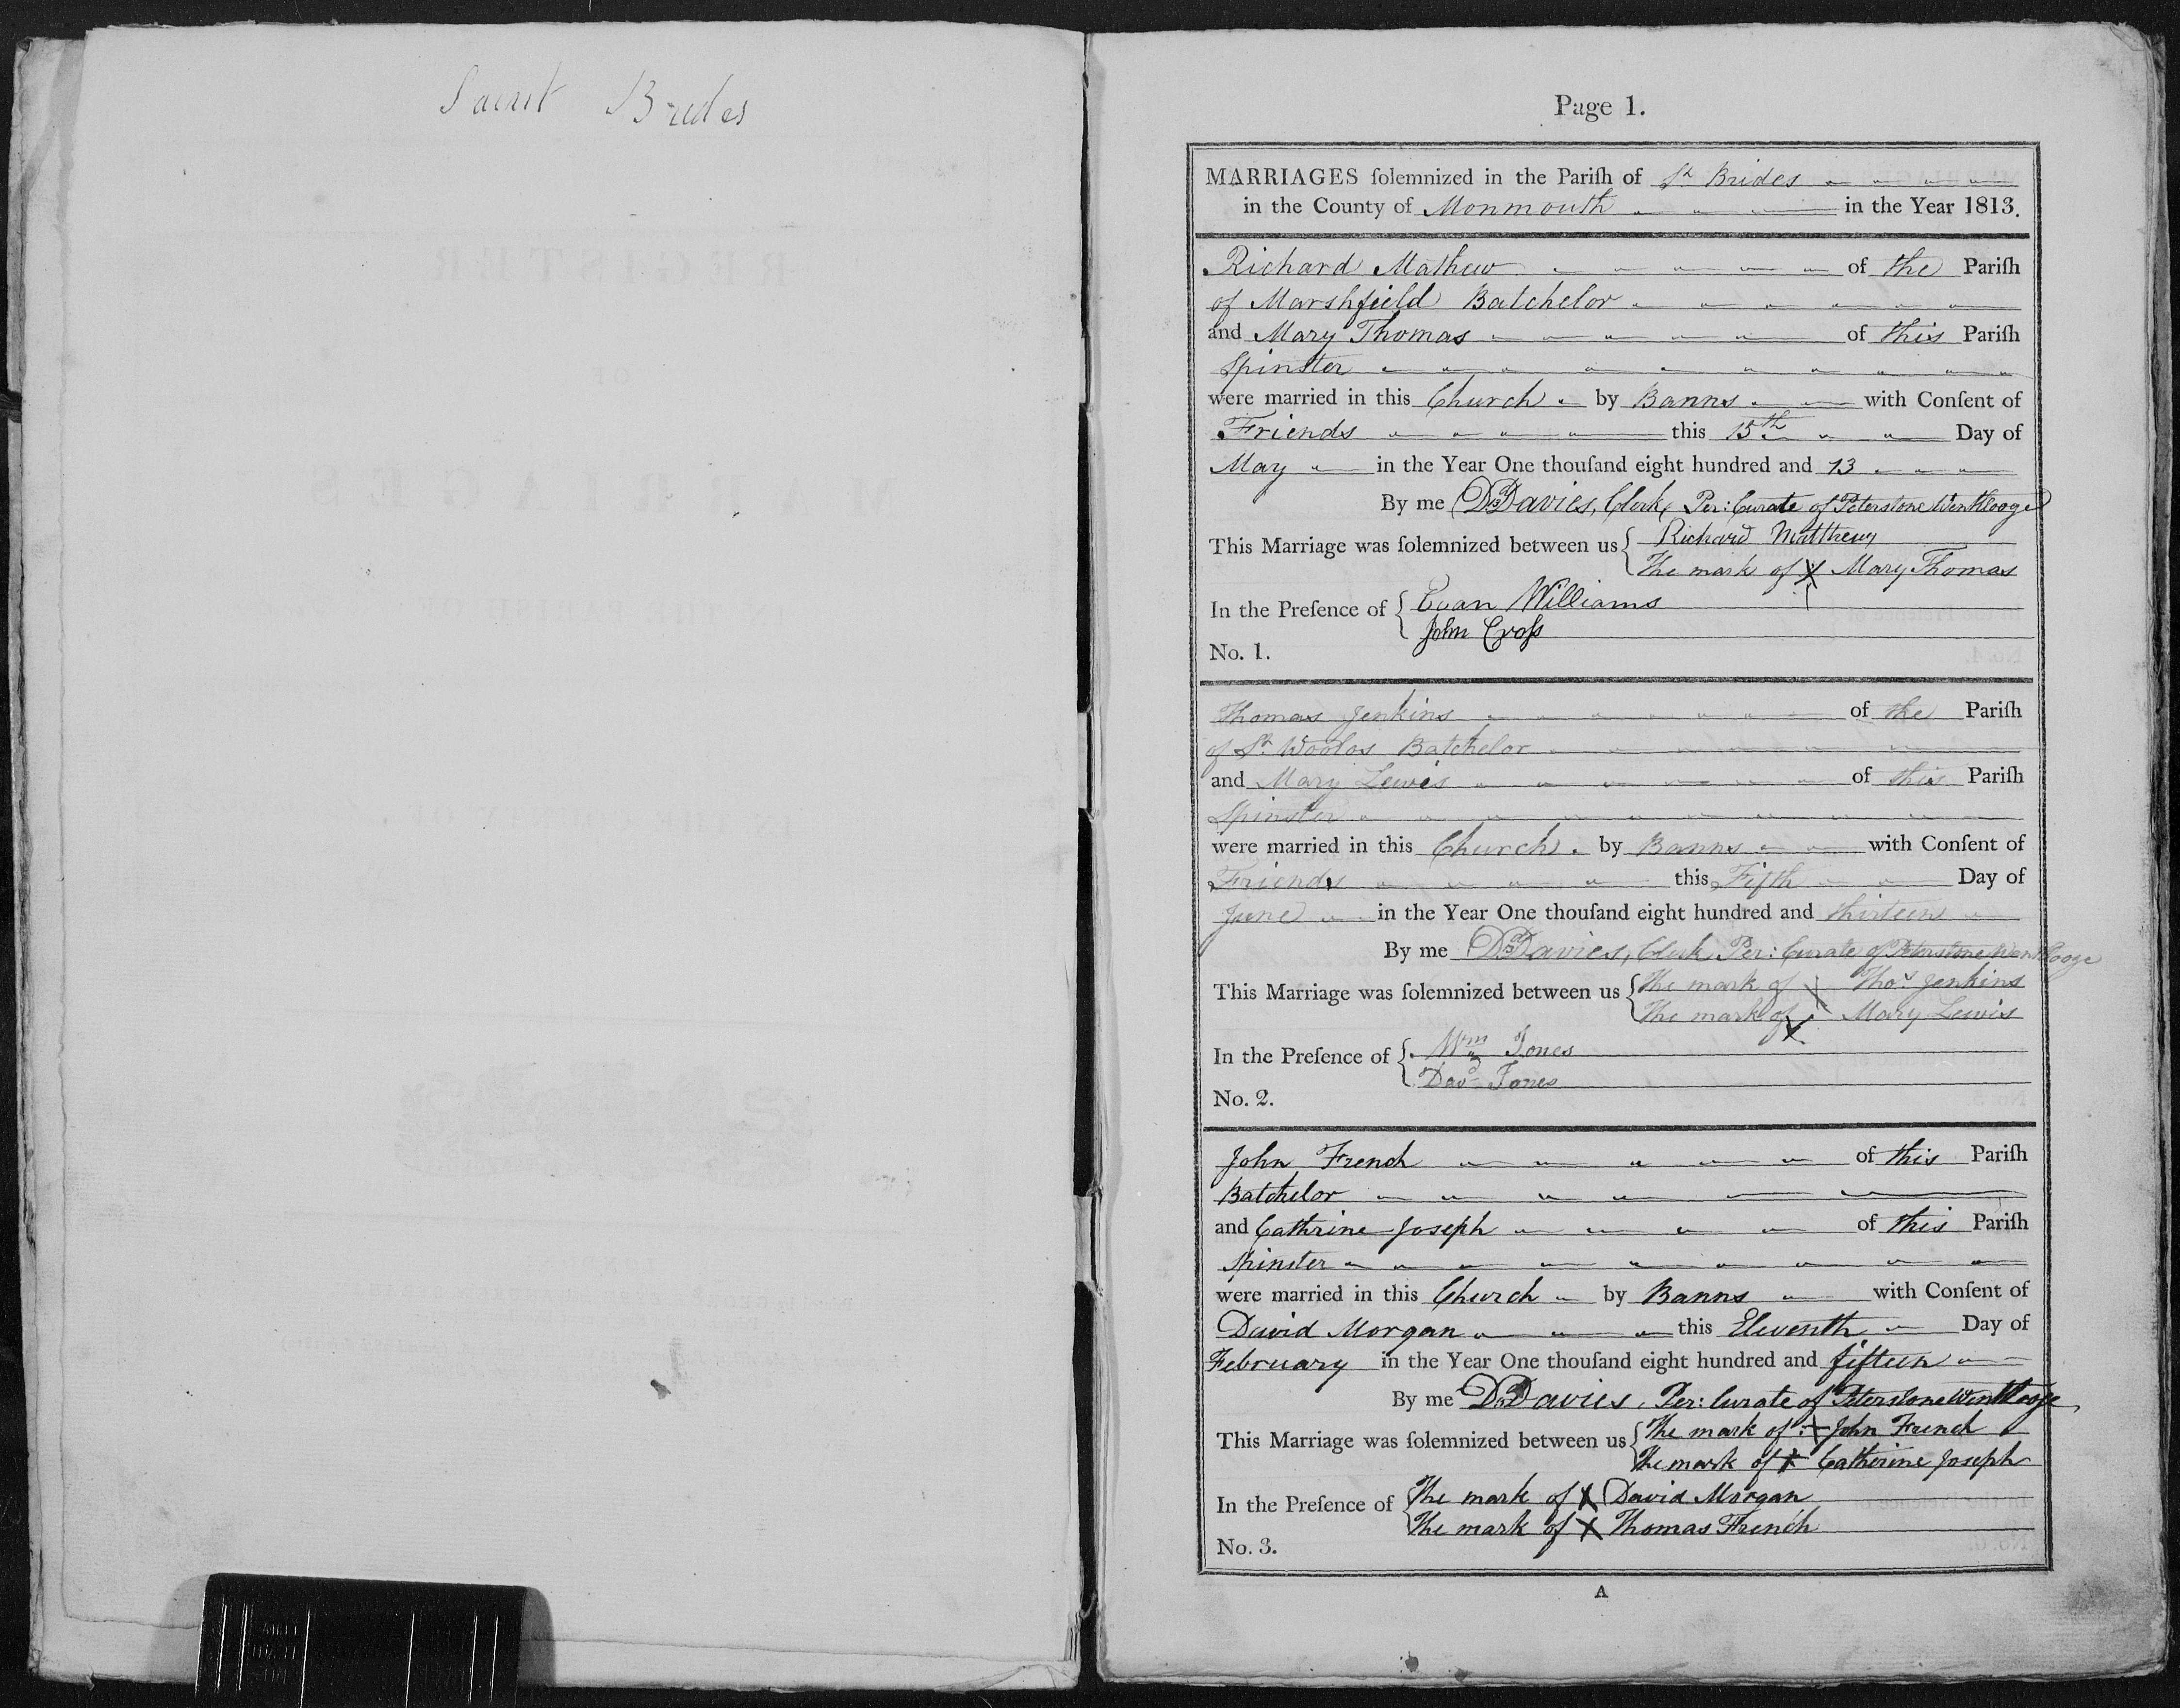 Saint Brides
Page 1.
MARRIAGES ſolemnized in the Pariſh of St Brides
in the County of Monmouth in the Year 1813.
Richard Mathew of the Pariſh
of Marshfield Batchelor
and Mary Thomas of this Pariſh
Spinster
were married in this Church by Banns with Conſent of
Friends this 15th Day of
May in the Year One thouſand eight hundred and 13
By me Dd Davies, Clerk, Per: Curate of Peterstone Wentllooge
This Marriage was ſolemnized between us { Richard Matthews
The mark of X Mary Thomas
In the Preſence of { Evan Williams
John Croſs
No. 1.
Thomas Jenkins of the Pariſh
of St Woolos Batchelor
and Mary Lewis of this Pariſh
Spinster
were married in this Church by Banns with Conſent of
Friends this Fifth Day of
June in the Year One thouſand eight hundred and thirteen
By me Dd Davies, Clerk Per: Curate of Peterstone Wentllooge
This Marriage was ſolemnized between us { The mark of X Thos Jenkins
The mark of X Mary Lewis
In the Preſence of { Wm Jones
Davd Jones
No. 2.
John French of this Pariſh
Batchelor
and Cathrine Joseph of this Pariſh
Spinster
were married in this Church by Banns with Conſent of
David Morgan this Eleventh Day of
February in the Year One thouſand eight hundred and fifteen
By me Dd Davies, Per: Curate of Peterstone Wentllooge
This Marriage was ſolemnized between us { The mark of X John French
The mark of X Catherine Joseph
In the Preſence of { The mark of X David Morgan
The mark of X Thomas French
No. 3.
A